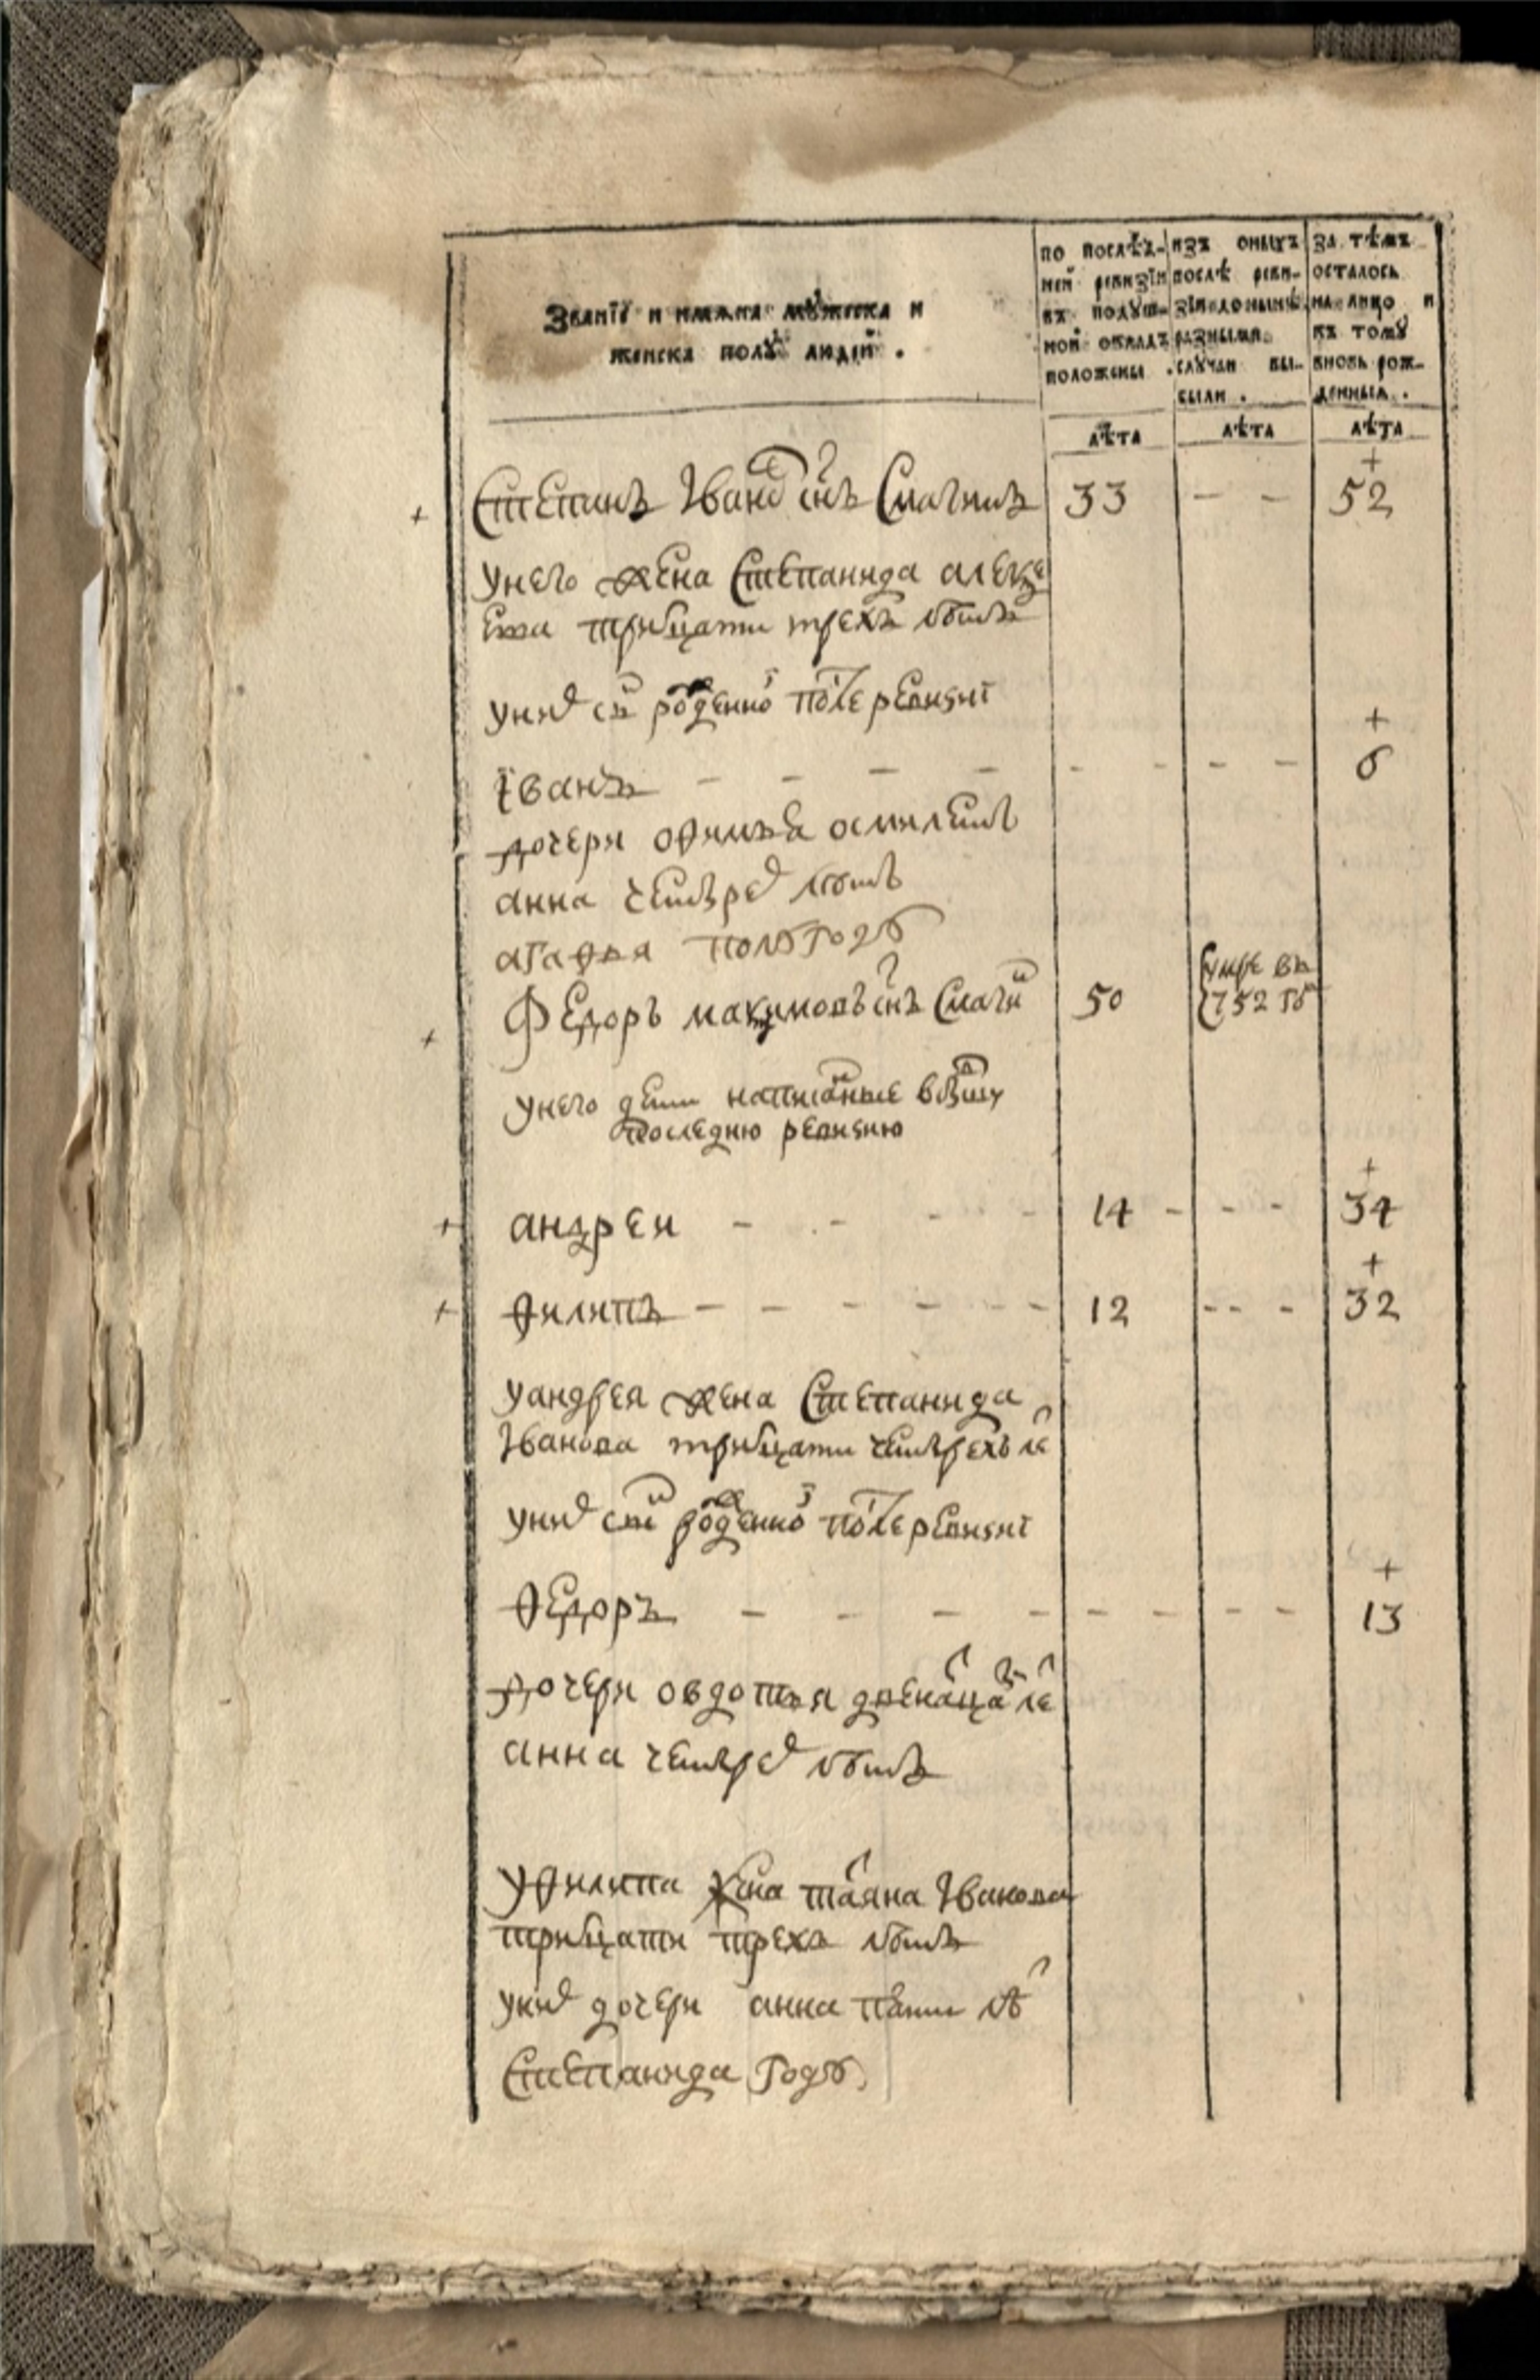 Званїѧ и имѧна мꙋжеска и
женска полꙋ людей .
по послѣд-
ней ревизїи
въ подꙋш-
ной окладъ
положены .
изъ оныхъ
послѣ реви-
зїи до нынѣ
разными
слꙋчаи вы-
были .
за тѣмъ
осталось
на лицо и
къ томꙋ
вновь рож-
денныѧ .
лѣта лѣта лѣта
Степанъ Iвановъ снъ Смагинъ 33 - - 52
унего жена Степанида алексе
ева тритцати трехъ лѣтъ
унихъ снъ рожденной после ревизиi
Iванъ - - - - - - - - 6
дочери офимья осми летъ
анна четырехъ лѣтъ
агафья полʋгоду
Федоръ максимовъ снъ Смагинъ 50 умре въ
752 году
унего дети написанные в бывшую
последнюю ревизию
андреи - - - - 14 - - - 34
филипъ - - - - - 12 - - - 32
уандрея жена Степанида
Iванова тритцати четырехъ ле
унихъ снъ рожденной после ревизиi
Федоръ - - - - - - - - - 13
дочери овдотья двенатцати ле
анна четырехъ лѣтъ
уфилипа жена татяна Iванова
тритцати трехъ лѣтъ
унихъ дочери анна пяти лѣ
Степанида году